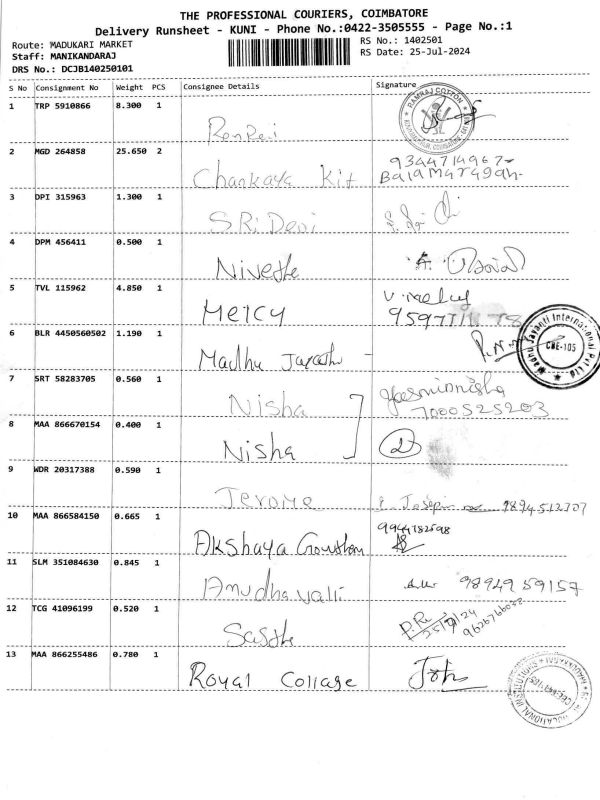 THE PROFESSIONAL COURIERS, COIMBATORE
Delivery Runsheet - KUNI - Phone No.:0422-3505555 - Page No.:1
Route: MADUKARI MARKET
RS No.: 1402501
Staff: MANIKANDARAJ
RS Date: 25-Jul-2024
DRS No.: DCJB140250101
S No Consignment No Weight PCS Consignee Details Signature
1 TRP 5910866 8.300 1
RAMRAJ COTTON
2 MGD 264858 25.650 2 Chankaya Kit 9344714967
Balamurugan
3 DPI 315963 1.300 1 SRi Devi
4 DPM 456411 0.500 1 Nivethe A.
5 TVL 115962 4.850 1 Mercy
6 BLR 4450560502 1.190 1 Madhu
Madhu Jayanti International Pvt Ltd
CBE-105
7 SRT 58283705 0.560 1 Nisha Yasminnisha
7000525203
8 MAA 866670154 0.400 1 Nisha 2
9 WDR 20317388 0.590 1 Jerome
10 MAA 866584150 0.665 1 Akshaya Gowtham
11 SLM 351084630 0.845 1 98949 59157
12 TCG 41096199 0.520 1 25/7/24
13 MAA 866255486 0.780 1 Royal Collage John